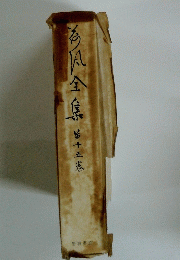 荷風全集
第十五卷